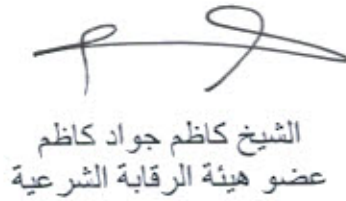 الشيخ كاظم جواد كاظم
عضو هيئة الرقابة الشرعية